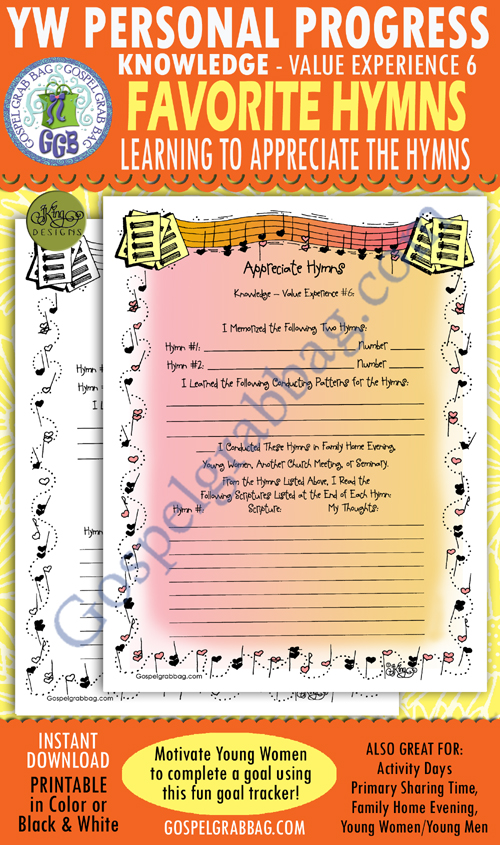 YW PERSONAL PROGRESS
KNOWLEDGE - VALUE EXPERIENCE 6
FAVORITE HYMNS
LEARNING TO APPRECIATE THE HYMNS
GOSPEL GRAB BAG GOSPEL GRAB BAG
GGB
JKing
DESIGNS
Appreciate Hymns
Knowledge – Value Experience #6:
I Memorized the Following Two Hymns:
Hymn #1: ____________ Number ____
Hymn #2: ____________ Number ____
I Learned the Following Conducting Patterns for the Hymns:
I Conducted These Hymns in Family Home Evening,
Young Women, Another Church Meeting, or Seminary.
From the Hymns Listed Above, I Read the
Following Scriptures Listed at the End of Each Hymn:
Hymn #: Scripture: My Thoughts:
Gospelgrabbag.com
Gospelgrabbag.com
Gospelgrabbag.com
INSTANT
DOWNLOAD
PRINTABLE
in Color or
Black & White
Motivate Young Women
to complete a goal using
this fun goal tracker!
GOSPELGRABBAG.COM
ALSO GREAT FOR:
Activity Days
Primary Sharing Time,
Family Home Evening,
Young Women/Young Men